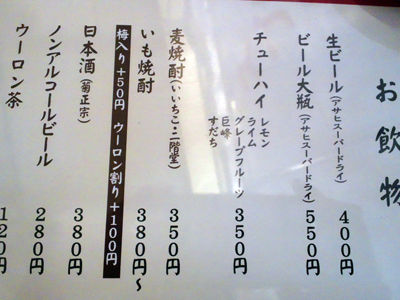 お飲物
生ビール(アサヒスーパードライ) 400円
ビール大瓶(アサヒスーパードライ) 550円
チューハイ レモン
ライム
グレープフルーツ
巨峰
すだち 350円
麦焼酎(いいちこ・二階堂) 350円
いも焼酎 380円〜
梅入り+50円 ウーロン割り+100円
日本酒(菊正宗) 380円
ノンアルコールビール 280円
ウーロン茶 120円